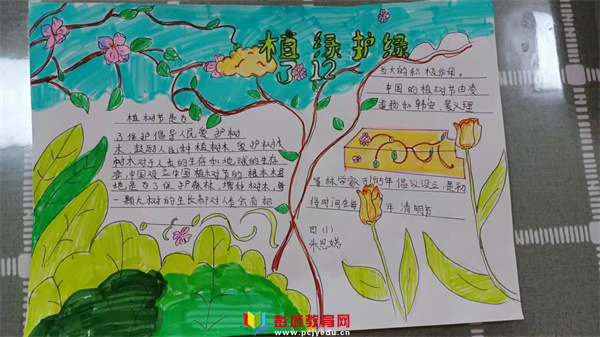 植绿护绿
3 12
植树节是为
了保护倡导人民爱护树
木,鼓励人民种植树木,爱护树木
树木对于人类的生存和地球的生存
非中国设立中国植树节的根本本目
地是为了保护森林,增种树木,每
一颗大树的生长都对人类会有相
当大的积极作用。
中国的植树节由凌
道扬和韩安、裴义理
等林学家于1915年倡议设立,最初
将时间在每 年 清明节
四(1)
彭城教育网
www.pcjyedu.cn